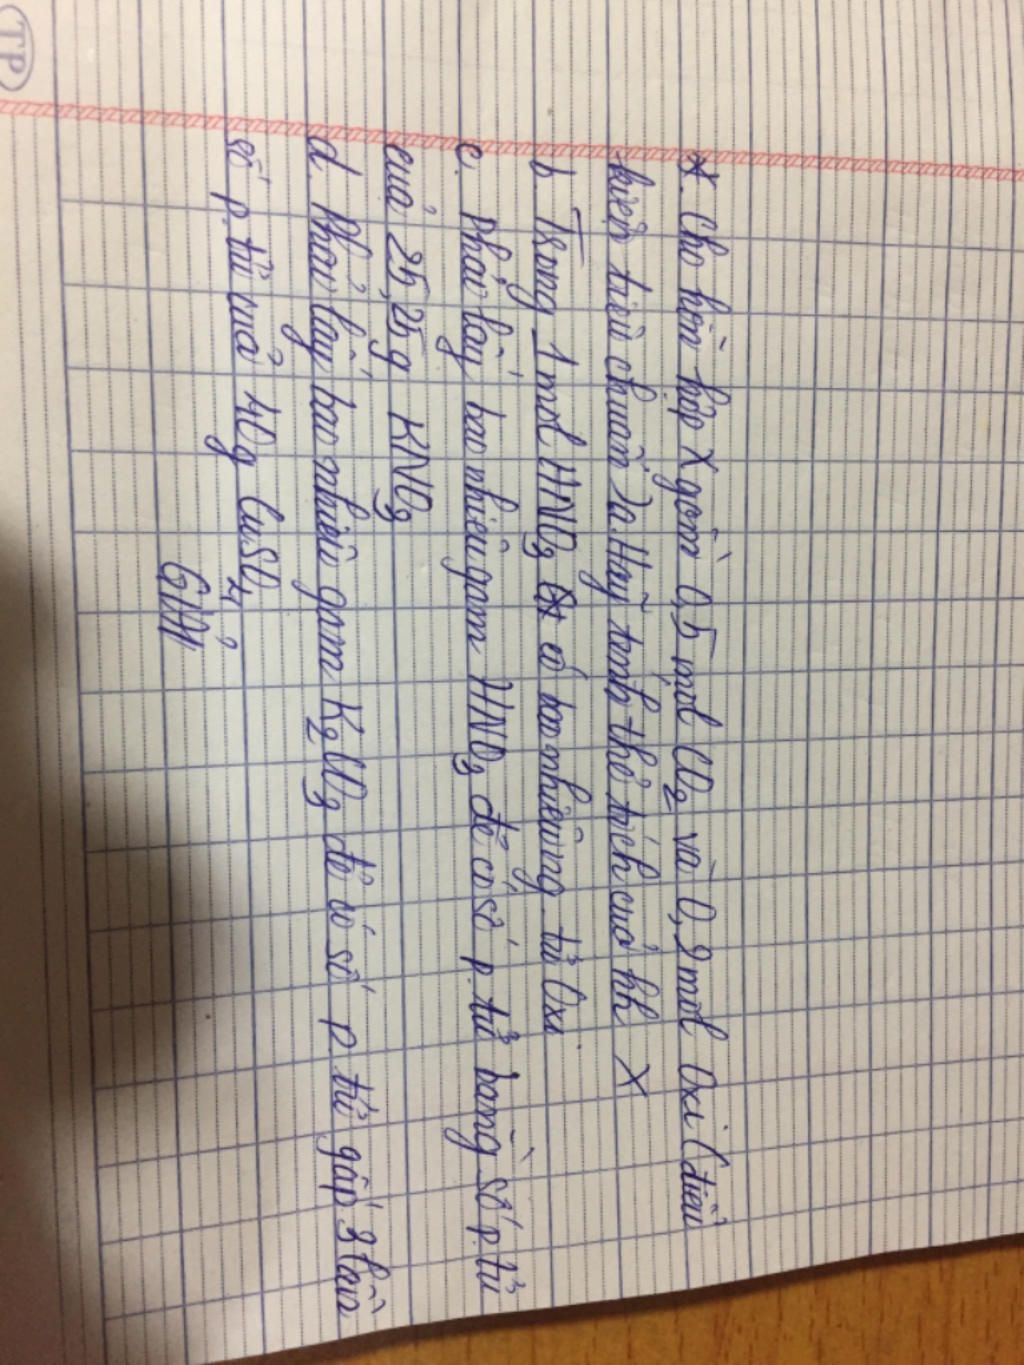 TP
*. Cho hỗn hợp X gồm 0,5 mol CO2 và 0,2 mol Oxi (điều
kiện tiêu chuẩn) a. Hãy tính thể tích của hh X
b. Trong 1 mol HNO3 có bao nhiêu ng. tử Oxi
c. Phải lấy bao nhiêu gam HNO3 để có số p. tử bằng số p. tử
của 25,25g KNO3
d. Phải lấy bao nhiêu gam K2CO3 để có số p tử gấp 3 lần
số p. tử của 40g CuSO4
Giải